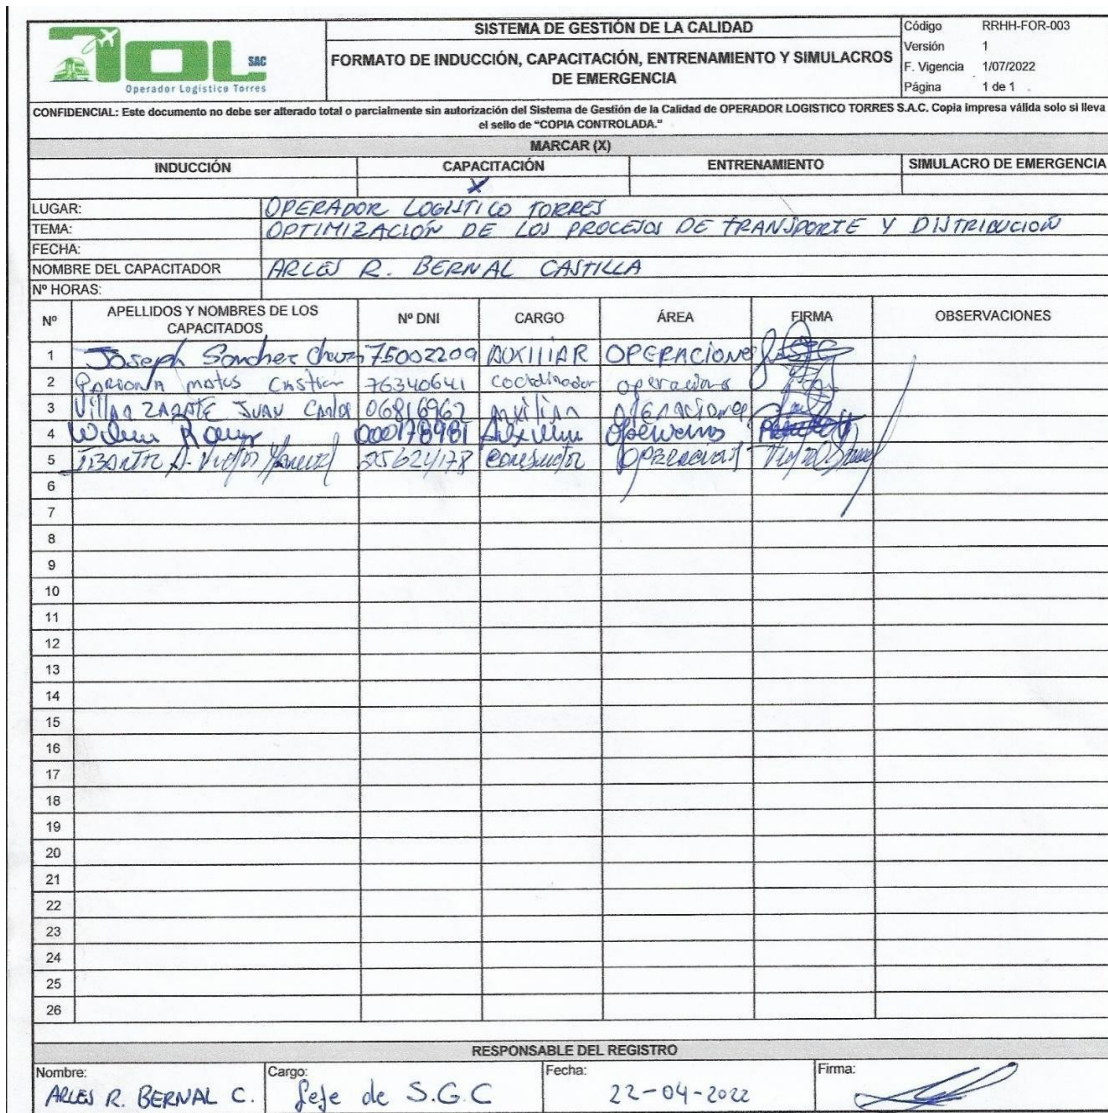 TOL SAC
Operador Logístico Torres
SISTEMA DE GESTIÓN DE LA CALIDAD
FORMATO DE INDUCCIÓN, CAPACITACIÓN, ENTRENAMIENTO Y SIMULACROS
DE EMERGENCIA
Código RRHH-FOR-003
Versión 1
F. Vigencia 1/07/2022
Página 1 de 1
CONFIDENCIAL: Este documento no debe ser alterado total o parcialmente sin autorización del Sistema de Gestión de la Calidad de OPERADOR LOGISTICO TORRES S.A.C. Copia impresa válida solo si lleva
el sello de "COPIA CONTROLADA."
MARCAR (X)
INDUCCIÓN CAPACITACIÓN ENTRENAMIENTO SIMULACRO DE EMERGENCIA
X
LUGAR: OPERADOR LOGISTICO TORRES
TEMA: OPTIMIZACIÓN DE LOS PROCESOS DE TRANSPORTE Y DISTRIBUCIÓN
FECHA:
NOMBRE DEL CAPACITADOR ARLES R. BERNAL CASTILLA
Nº HORAS:
Nº APELLIDOS Y NOMBRES DE LOS CAPACITADOS Nº DNI CARGO ÁREA FIRMA OBSERVACIONES
1 Joseph Sanchez 75002209 AUXILIAR OPERACIONES
2 PARIONA matos 76340641 coordinador operaciones
3 Villar ZARATE JUAN Carlos 06816962 auxiliar operaciones
4 000178981 Auxiliar
5 Victor Manuel 25624178 conductor OPERACIONES
6
7
8
9
10
11
12
13
14
15
16
17
18
19
20
21
22
23
24
25
26
RESPONSABLE DEL REGISTRO
Nombre: Cargo: Fecha: Firma:
ARLES R. BERNAL C. Jefe de S.G.C 22-04-2022